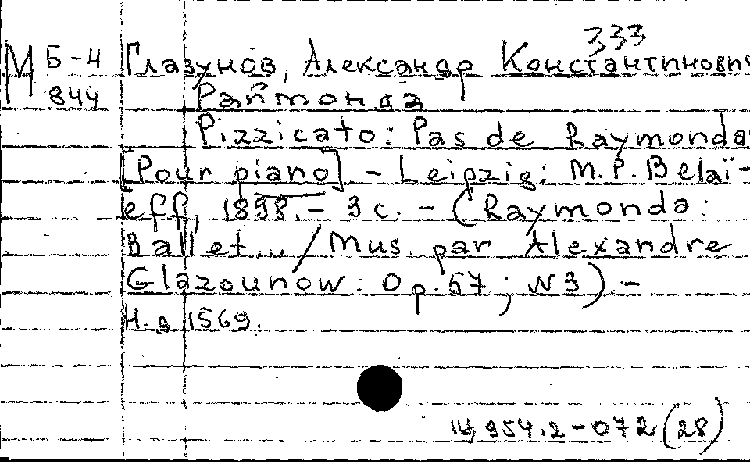 333
М Б-4 Глазунов, Александр Константинович
844 Раймонда
Pizzicato: Pas de Raymonda:
[Pour piano]. - Leipzig: M.P. Belaï-
eff, 1898. - 3 с. - (Raymonda:
Ballet... / Mus. par Alexandre
Glazounow: Op. 57; N3). -
Н.д. 1569.
954.2-072 (28)